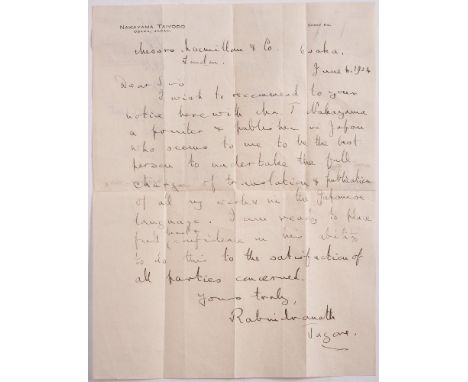 NAKAYAMA TAIYODO
OSAKA, JAPAN
Messrs Macmillan & Co.
London.
Osaka.
June 6. 1924
Dear Sirs
I wish to recommend to your
notice here with Mr. T Nakayama
a printer & publisher in Japan
who seems to me to be the best
person to undertake the full
charge of translation & publication
of all my works in the Japanese
language. I am ready to place
full confidence in his ability
to do this to the satisfaction of
all parties concerned.
Yours truly,
Rabindranath
Tagore.